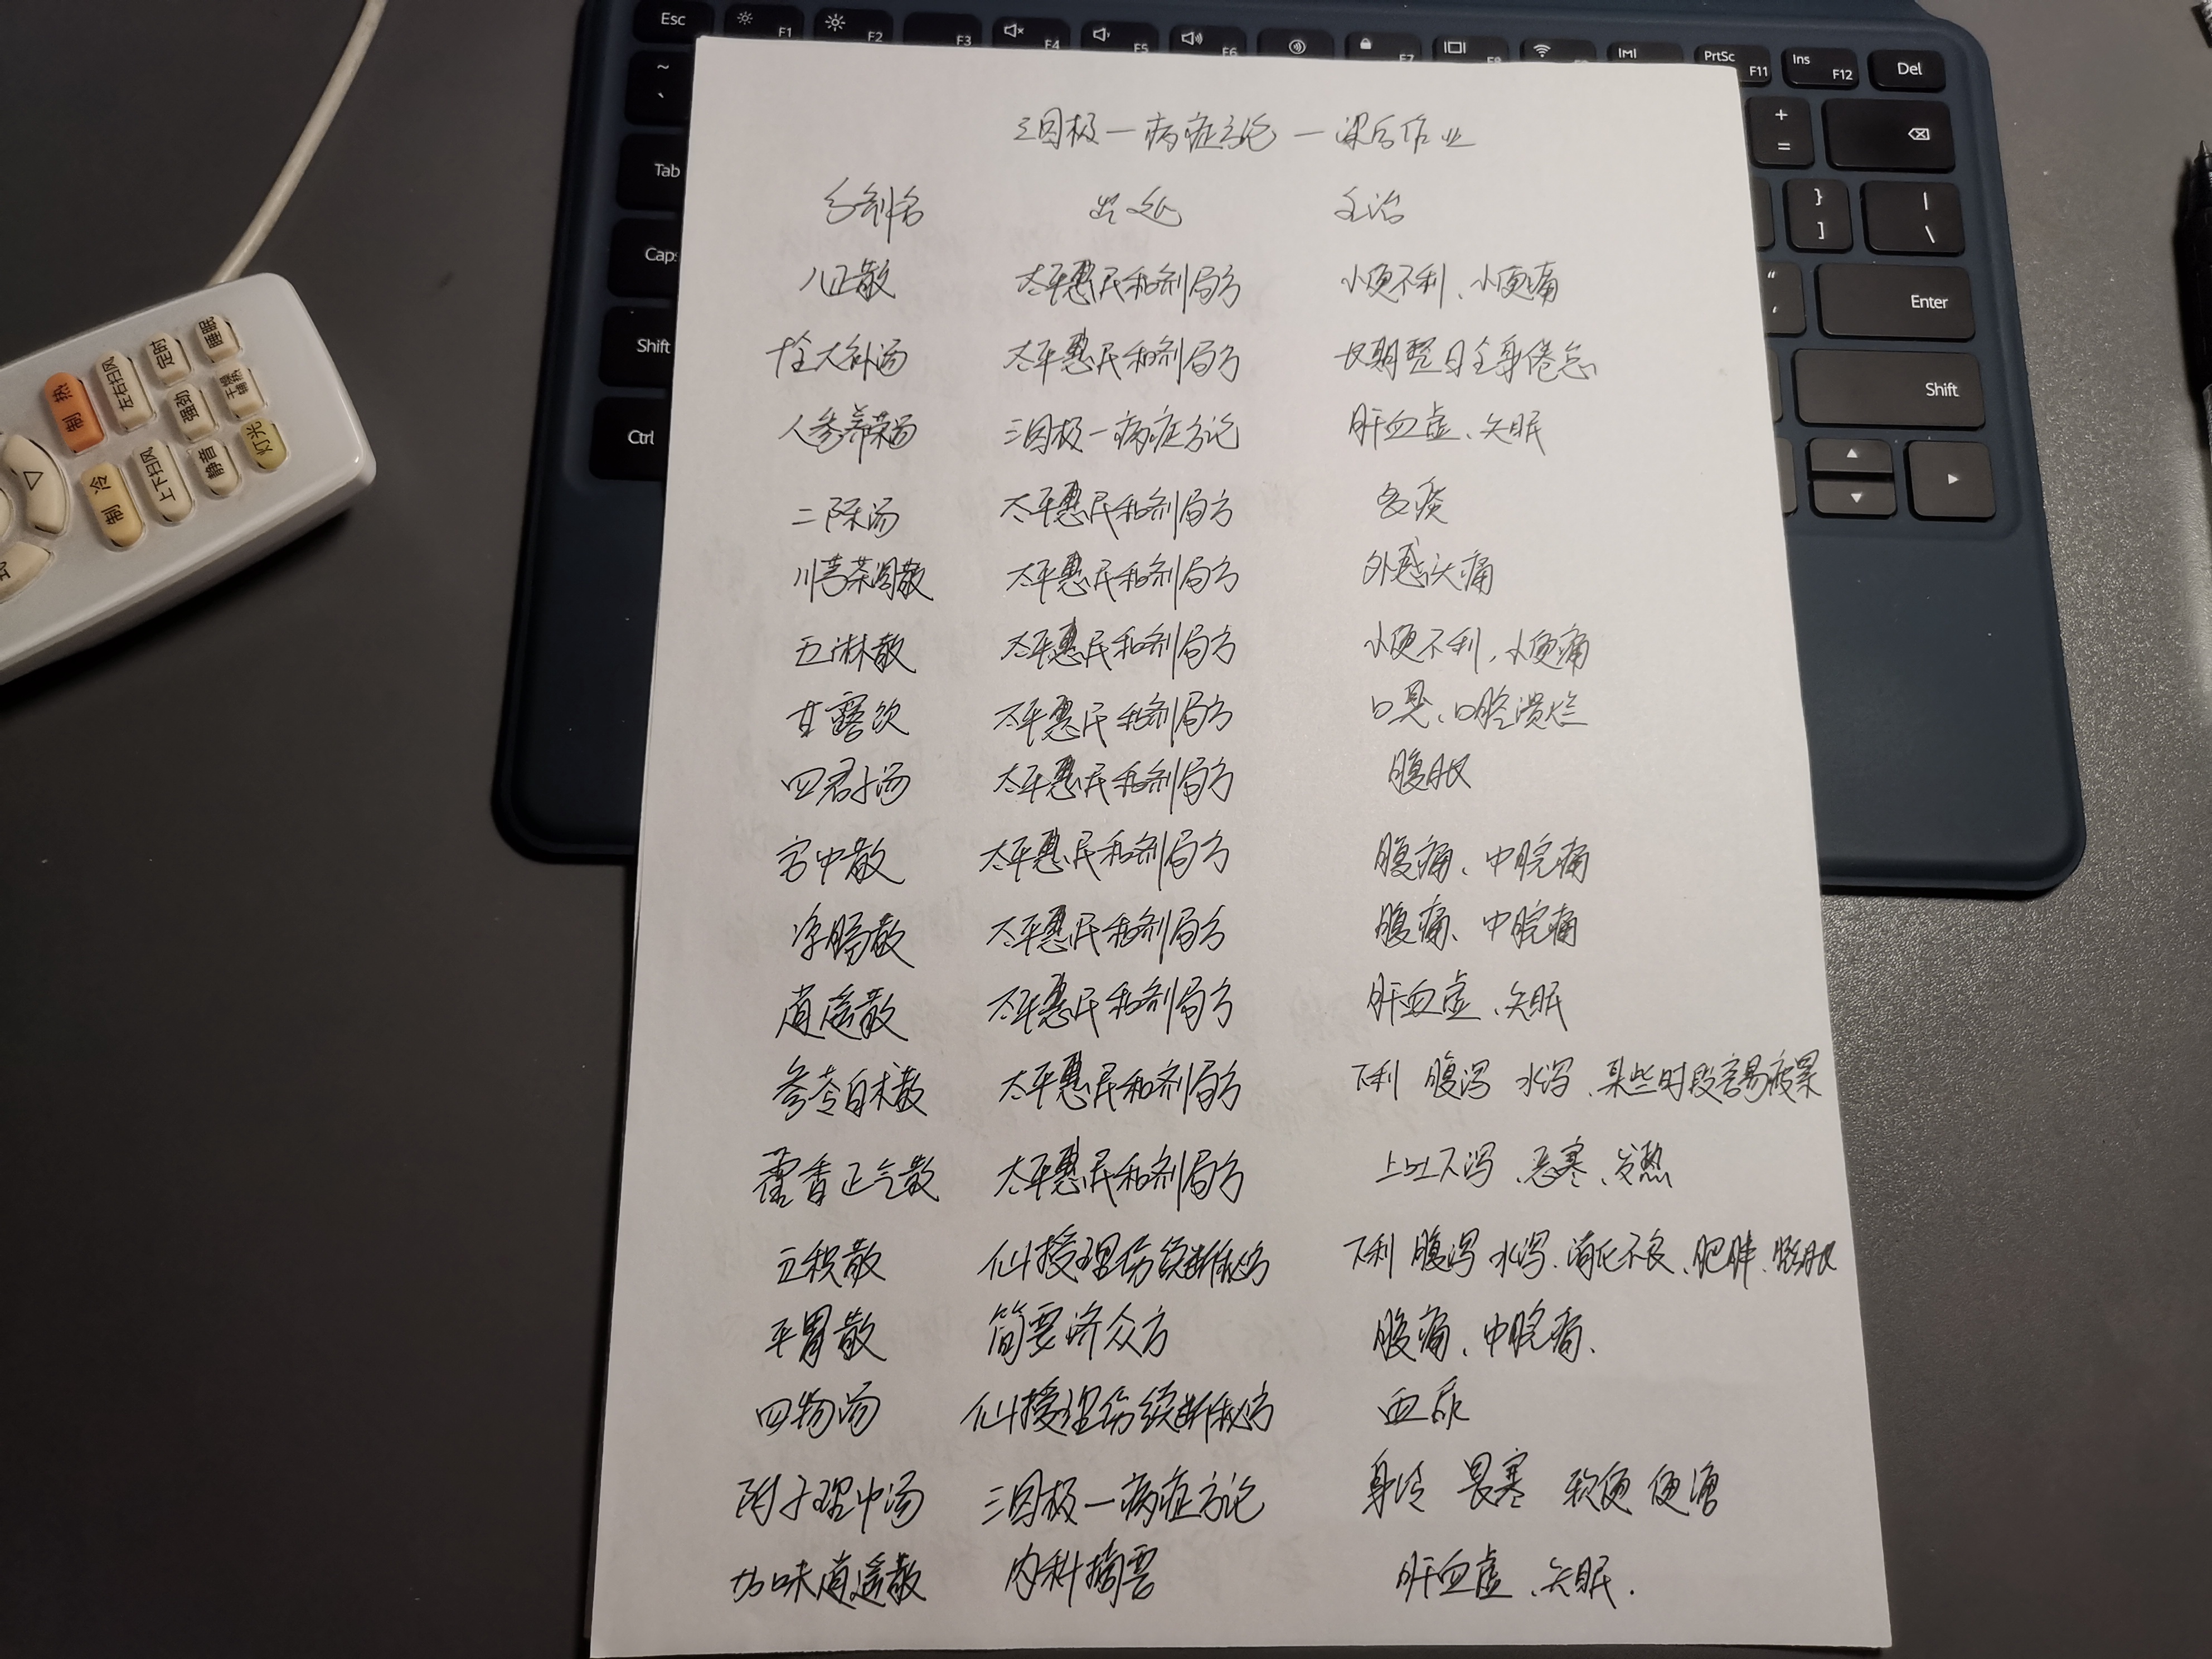 Esc F1 F2 F3 F4 F5 F6 F7 F8 PrtSc F11 Ins F12 Del
~ `
+ =
Tab
} ]
| \
Caps
" '
Enter
Shift
Shift
Ctrl
睡眠
定时
左右扫风
制热
干燥
强劲
灯光
静音
上下扫风
制冷
三因极一病症方论—课后作业
方剂名 出处 主治
八正散 太平惠民和剂局方 小便不利、小便痛
十全大补汤 太平惠民和剂局方 长期整日全身倦怠
人参养荣汤 三因极一病症方论 肝血虚、失眠
二陈汤 太平惠民和剂局方 多痰
川芎茶调散 太平惠民和剂局方 外感头痛
五淋散 太平惠民和剂局方 小便不利,小便痛
甘露饮 太平惠民和剂局方 口臭、口腔溃烂
四君子汤 太平惠民和剂局方 腹胀
安中散 太平惠民和剂局方 腹痛、中脘痛
太平惠民和剂局方 腹痛、中脘痛
逍遥散 太平惠民和剂局方 肝血虚、失眠
参苓白术散 太平惠民和剂局方 下利 腹泻 水泻、某些时段容易疲累
藿香正气散 太平惠民和剂局方 上吐下泻、恶寒、发热
五积散 仙授理伤续断秘方 下利 腹泻 水泻、消化不良、肥胖、腹胀
平胃散 简要济众方 腹痛、中脘痛、
四物汤 仙授理伤续断秘方 血尿
附子理中汤 三因极一病症方论 身冷 畏寒 软便 便溏
加味逍遥散 内科摘要 肝血虚、失眠.